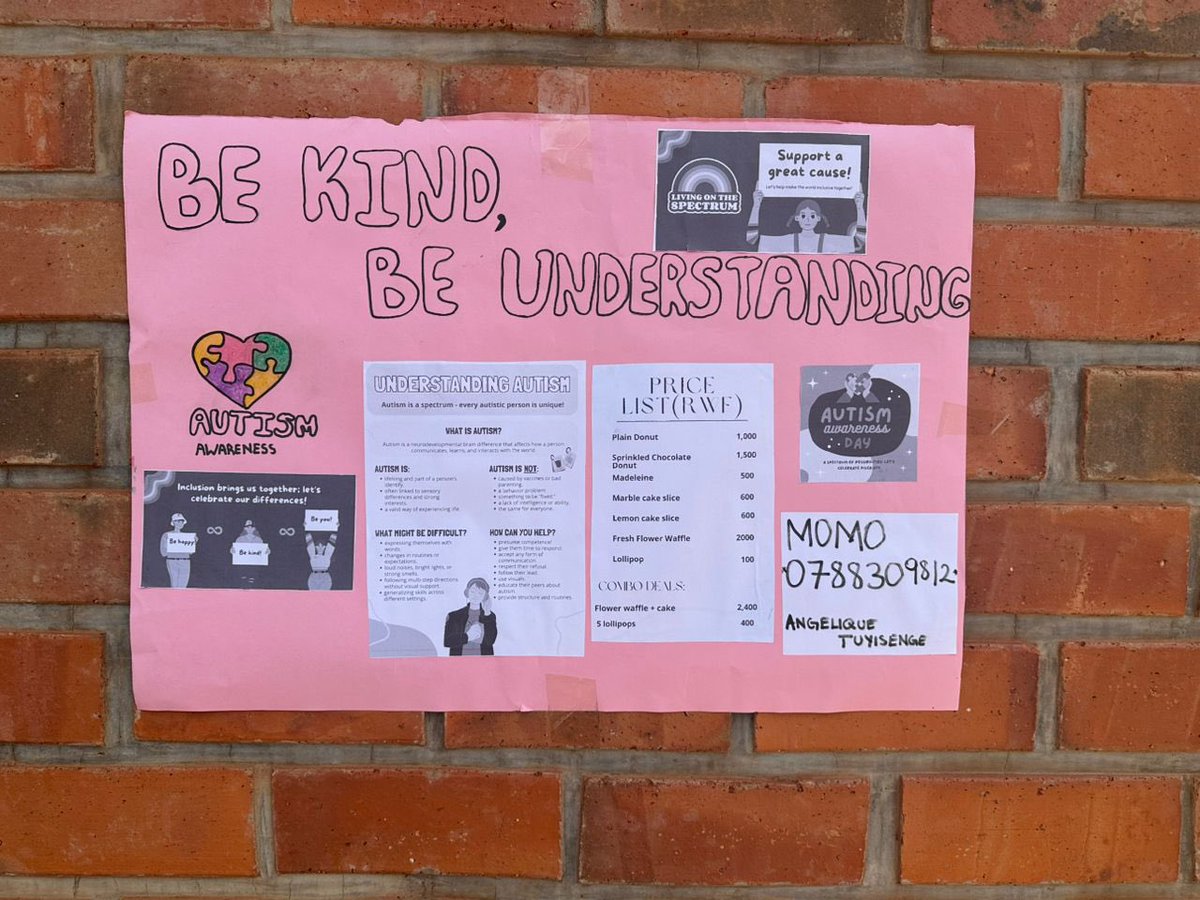 BE KIND,
BE UNDERSTANDING
LIVING ON THE
SPECTRUM
Support a
great cause!
Let's help make the world inclusive together!
AUTISM
AWARENESS
Inclusion brings us together; let's
celebrate our differences!
Be happy
Be kind!
Be you!
UNDERSTANDING AUTISM
Autism is a spectrum - every autistic person is unique!
WHAT IS AUTISM?
Autism is a neurodevelopmental brain difference that affects how a person
communicates, learns, and interacts with the world.
AUTISM IS:
lifelong and part of a person's
identify.
often linked to sensory
differences and strong
interests.
a valid way of experiencing life.
AUTISM IS NOT:
caused by vaccines or bad
parenting.
a behavior problem.
something to be "fixed."
a lack of intelligence or ability.
the same for everyone.
WHAT MIGHT BE DIFFICULT?
expressing themselves with
words.
changes in routines or
expectations.
loud noises, bright lights, or
strong smells.
following multi-step directions
without visual support.
generalizing skills across
different settings.
HOW CAN YOU HELP?
presume competence!
give them time to respond.
accept any form of
communication.
respect their refusal.
follow their lead.
use visuals.
educate their peers about
autism.
provide structure and routines.
PRICE
LIST(RWF)
Plain Donut 1,000
Sprinkled Chocolate 1,500
Donut
Madeleine 500
Marble cake slice 600
Lemon cake slice 600
Fresh Flower Waffle 2000
Lollipop 100
COMBO DEALS:
Flower waffle + cake 2,400
5 lollipops 400
AUTISM
awareness
DAY
A SPECTRUM OF POSSIBILITIES: LET'S
MOMO
0788309812
ANGELIQUE
TUYISENGE